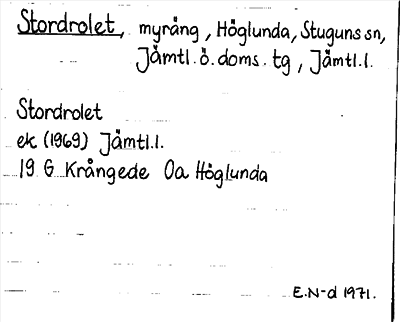 Stordrolet, myrång, Höglunda, Stuguns sn,
Jämtl. ö. doms. tg, Jämtl. l.
Stordrolet
ek (1969) Jämtl. l.
19 G Krångede Oa Höglunda
E.N-d 1971.